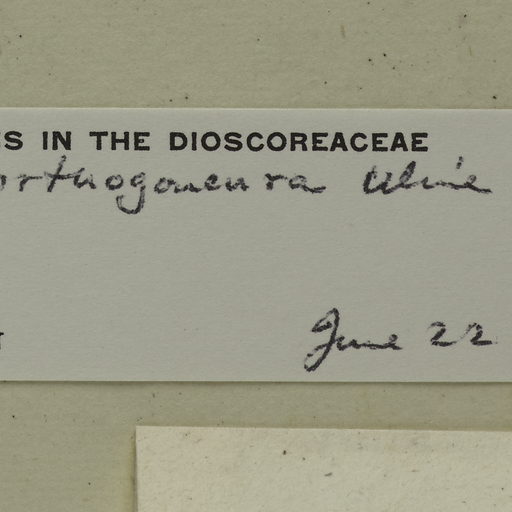 S IN THE DIOSCOREACEAE
orthogoneura Uline
June 22